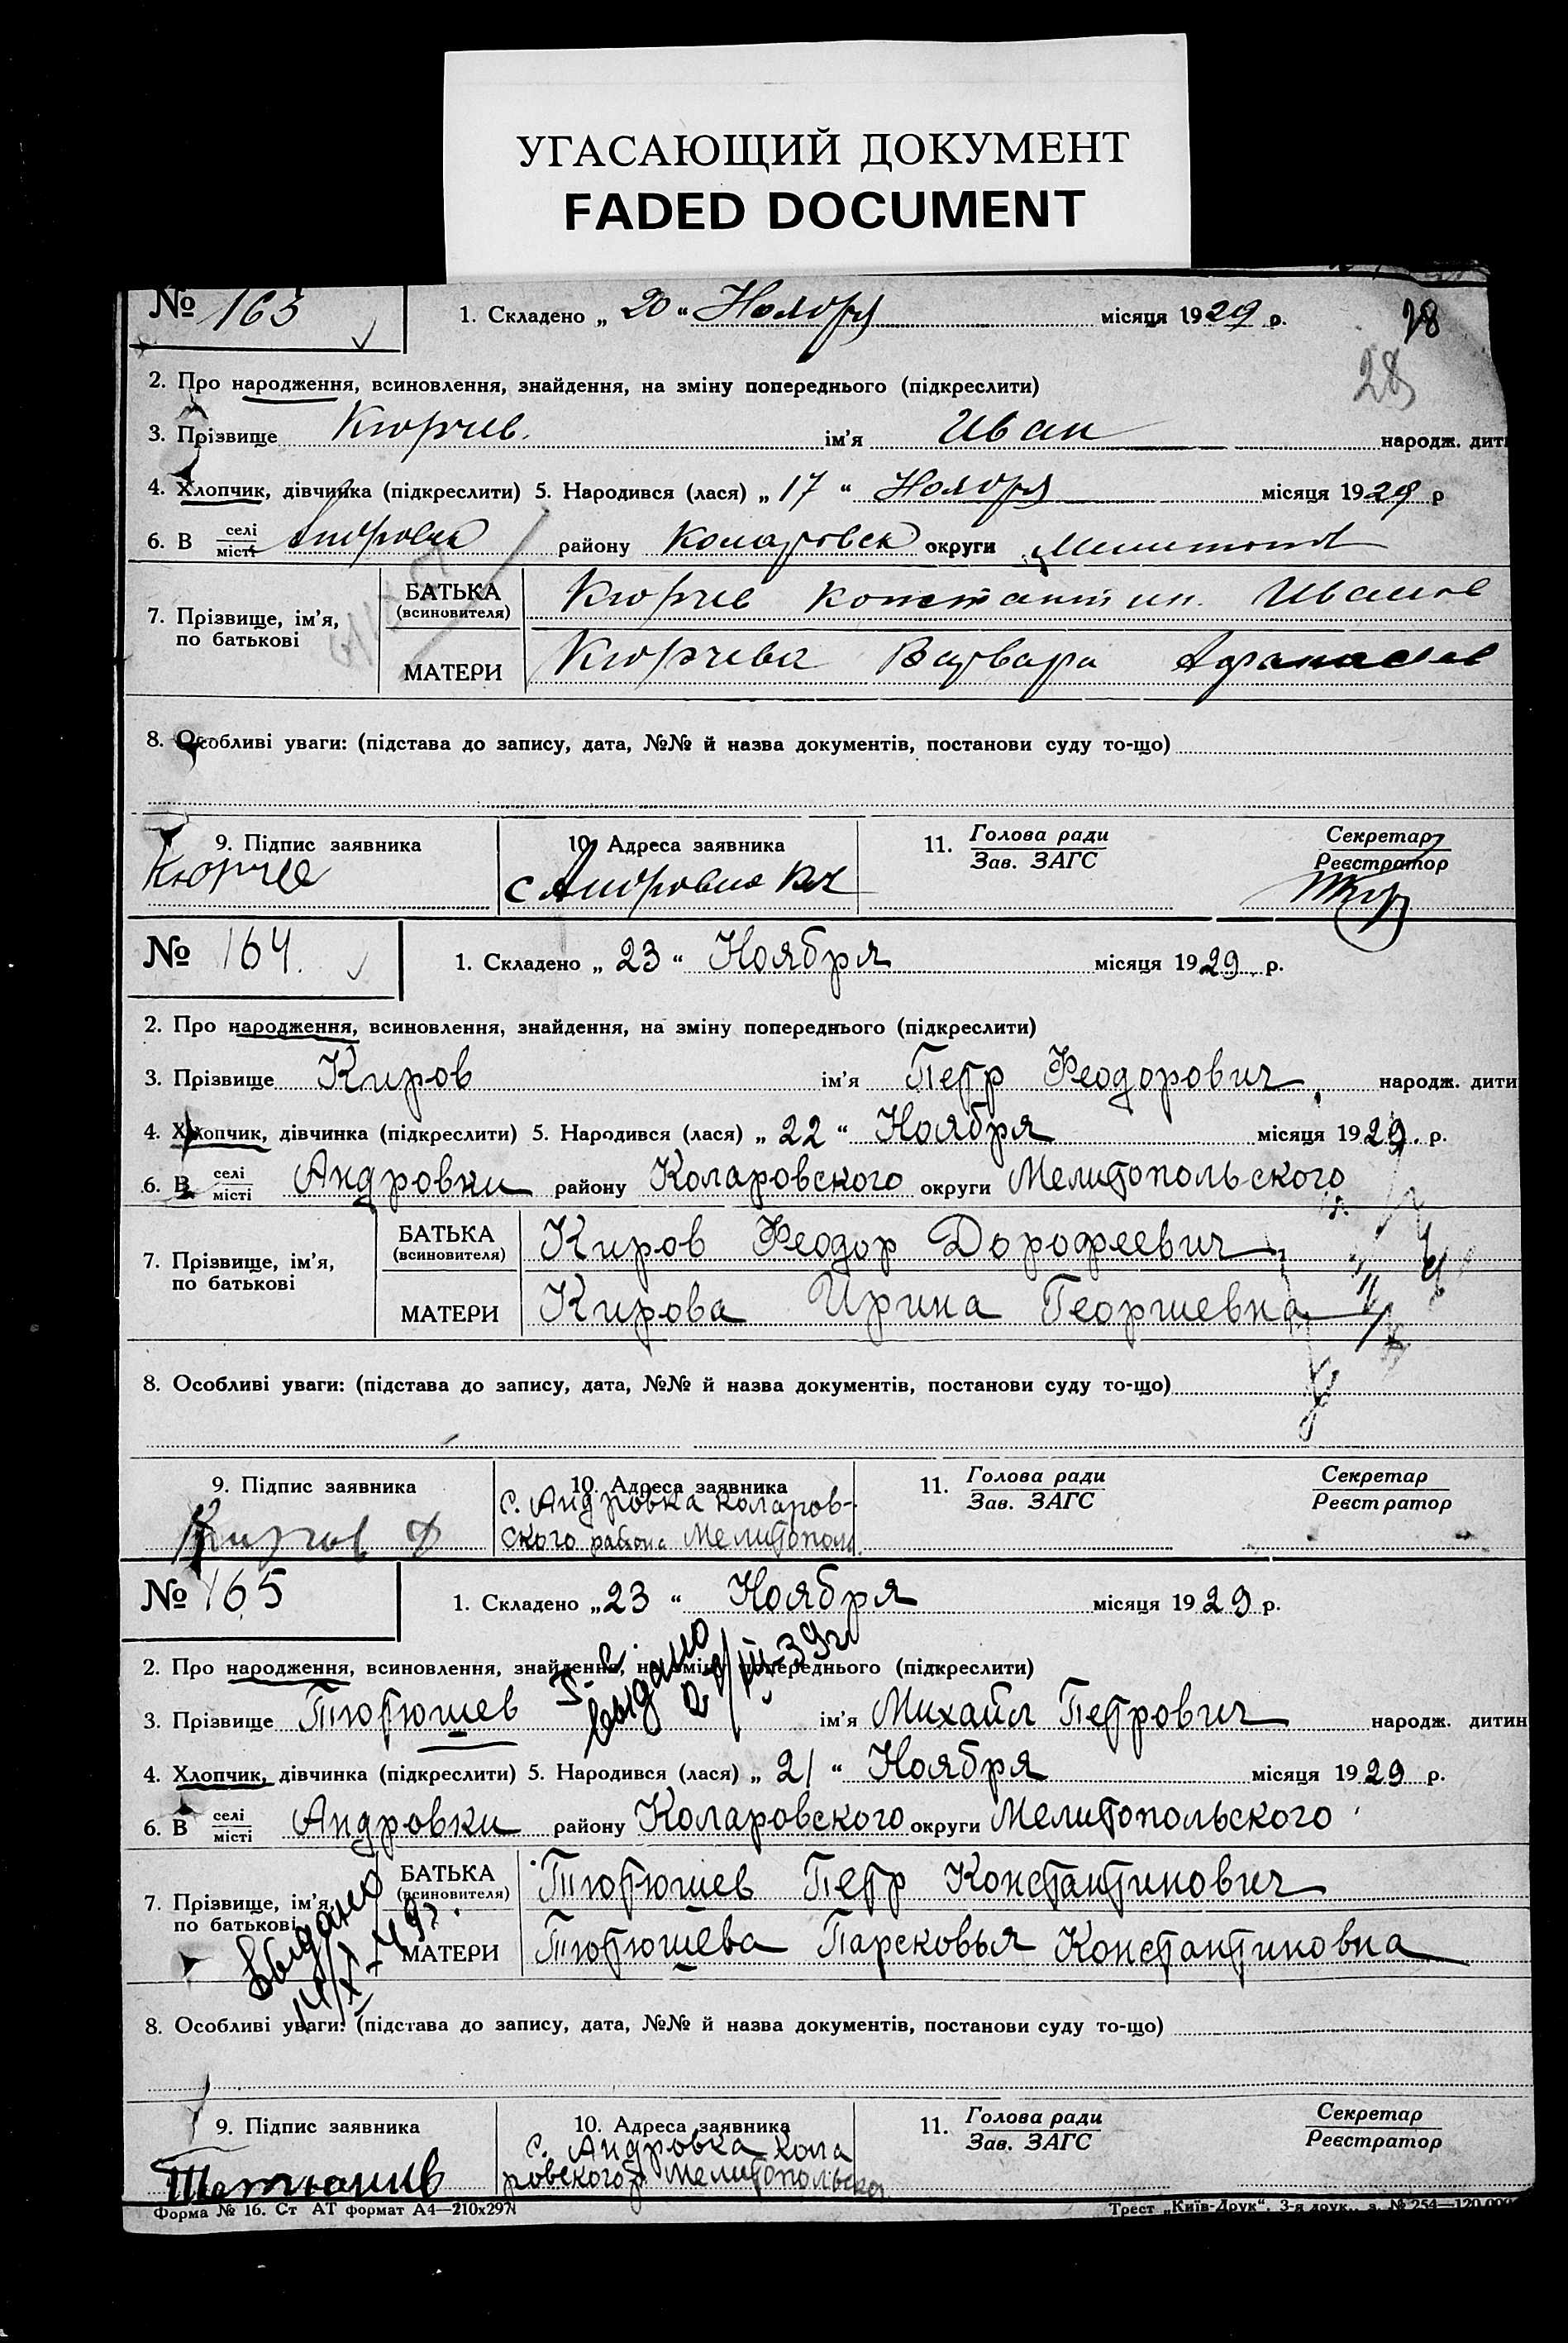 УГАСАЮЩИЙ ДОКУМЕНТ
FADED DOCUMENT
№ 163
1. Складено „ 20 “ Ноября місяця 1929 р.
28
28
2. Про народження, всиновлення, знайдення, на зміну попереднього (підкреслити)
3. Прізвище Кюрчев. ім'я Иван народж. дити
4. Хлопчик, дівчинка (підкреслити) 5. Народився (лася) „ 17 “ Ноября місяця 1929 р
6. В селі місті Андровка району Коларовск округи Мелитопол
7. Прізвище, ім'я, по батькові
БАТЬКА (всиновителя) Кюрчев Константин. Иванов
МАТЕРИ Кюрчева Варвара Афанасьев
8. Особливі уваги: (підстава до запису, дата, №№ й назва документів, постанови суду то-що)
9. Підпис заявника
10. Адреса заявника
11. Голова ради Зав. ЗАГС
Секретар Реєстратор
Кюрчев
с Андровка
№ 164.
1. Складено „ 23 “ Ноября місяця 1929 р.
2. Про народження, всиновлення, знайдення, на зміну попереднього (підкреслити)
3. Прізвище Киров ім'я Петр Феодорович народж. дити
4. Хлопчик, дівчинка (підкреслити) 5. Народився (лася) „ 22 “ Ноября місяця 1929. р.
6. В селі місті Андровки району Коларовского округи Мелитопольского
7. Прізвище, ім'я, по батькові
БАТЬКА (всиновителя) Киров Феодор Дорофеевич
МАТЕРИ Кирова Ирина Георгиевна
8. Особливі уваги: (підстава до запису, дата, №№ й назва документів, постанови суду то-що)
9. Підпис заявника
10. Адреса заявника
11. Голова ради Зав. ЗАГС
Секретар Реєстратор
с. Андровка Коларов-
ского района Мелитопол.
№ 165
1. Складено „ 23 “ Ноября місяця 1929 р.
2. Про народження, всиновлення, знайдення, на зміну попереднього (підкреслити)
выдано
3. Прізвище Тютюшев ім'я Михаил Петрович народж. дитин
4. Хлопчик, дівчинка (підкреслити) 5. Народився (лася) „ 21 “ Ноября місяця 1929 р.
6. В селі місті Андровки району Коларовского округи Мелитопольского
7. Прізвище, ім'я, по батькові
БАТЬКА (всиновителя) Тютюшев Петр Константинович
МАТЕРИ Тютюшева Парсковья Константиновна
Выдано
8. Особливі уваги: (підстава до запису, дата, №№ й назва документів, постанови суду то-що)
9. Підпис заявника
10. Адреса заявника
11. Голова ради Зав. ЗАГС
Секретар Реєстратор
с. Андровка Кола
ровского р. Мелитопольско
Форма № 16. Ст АТ формат А4—210х297
Трест „Київ-Друк“, 3-я друк., з. № 254—120.000